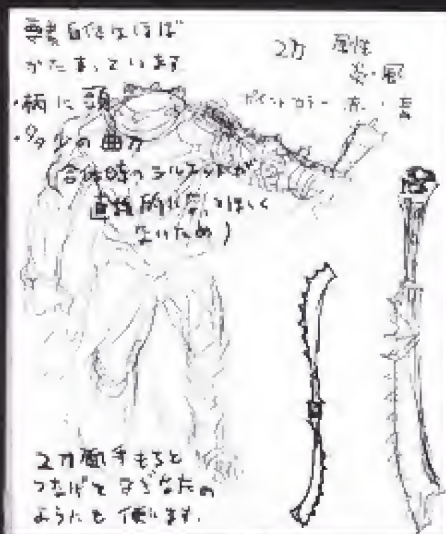 要素自体はほぼ
かたまっています
・柄に頭
・多少の曲刀
合体時のシルエットが
直線的になってほしく
ないため)
2刀 属性
炎・風
ポイントカラー 赤・青
2刀両手もちと
つなげてなぎなたの
ようにも使います。